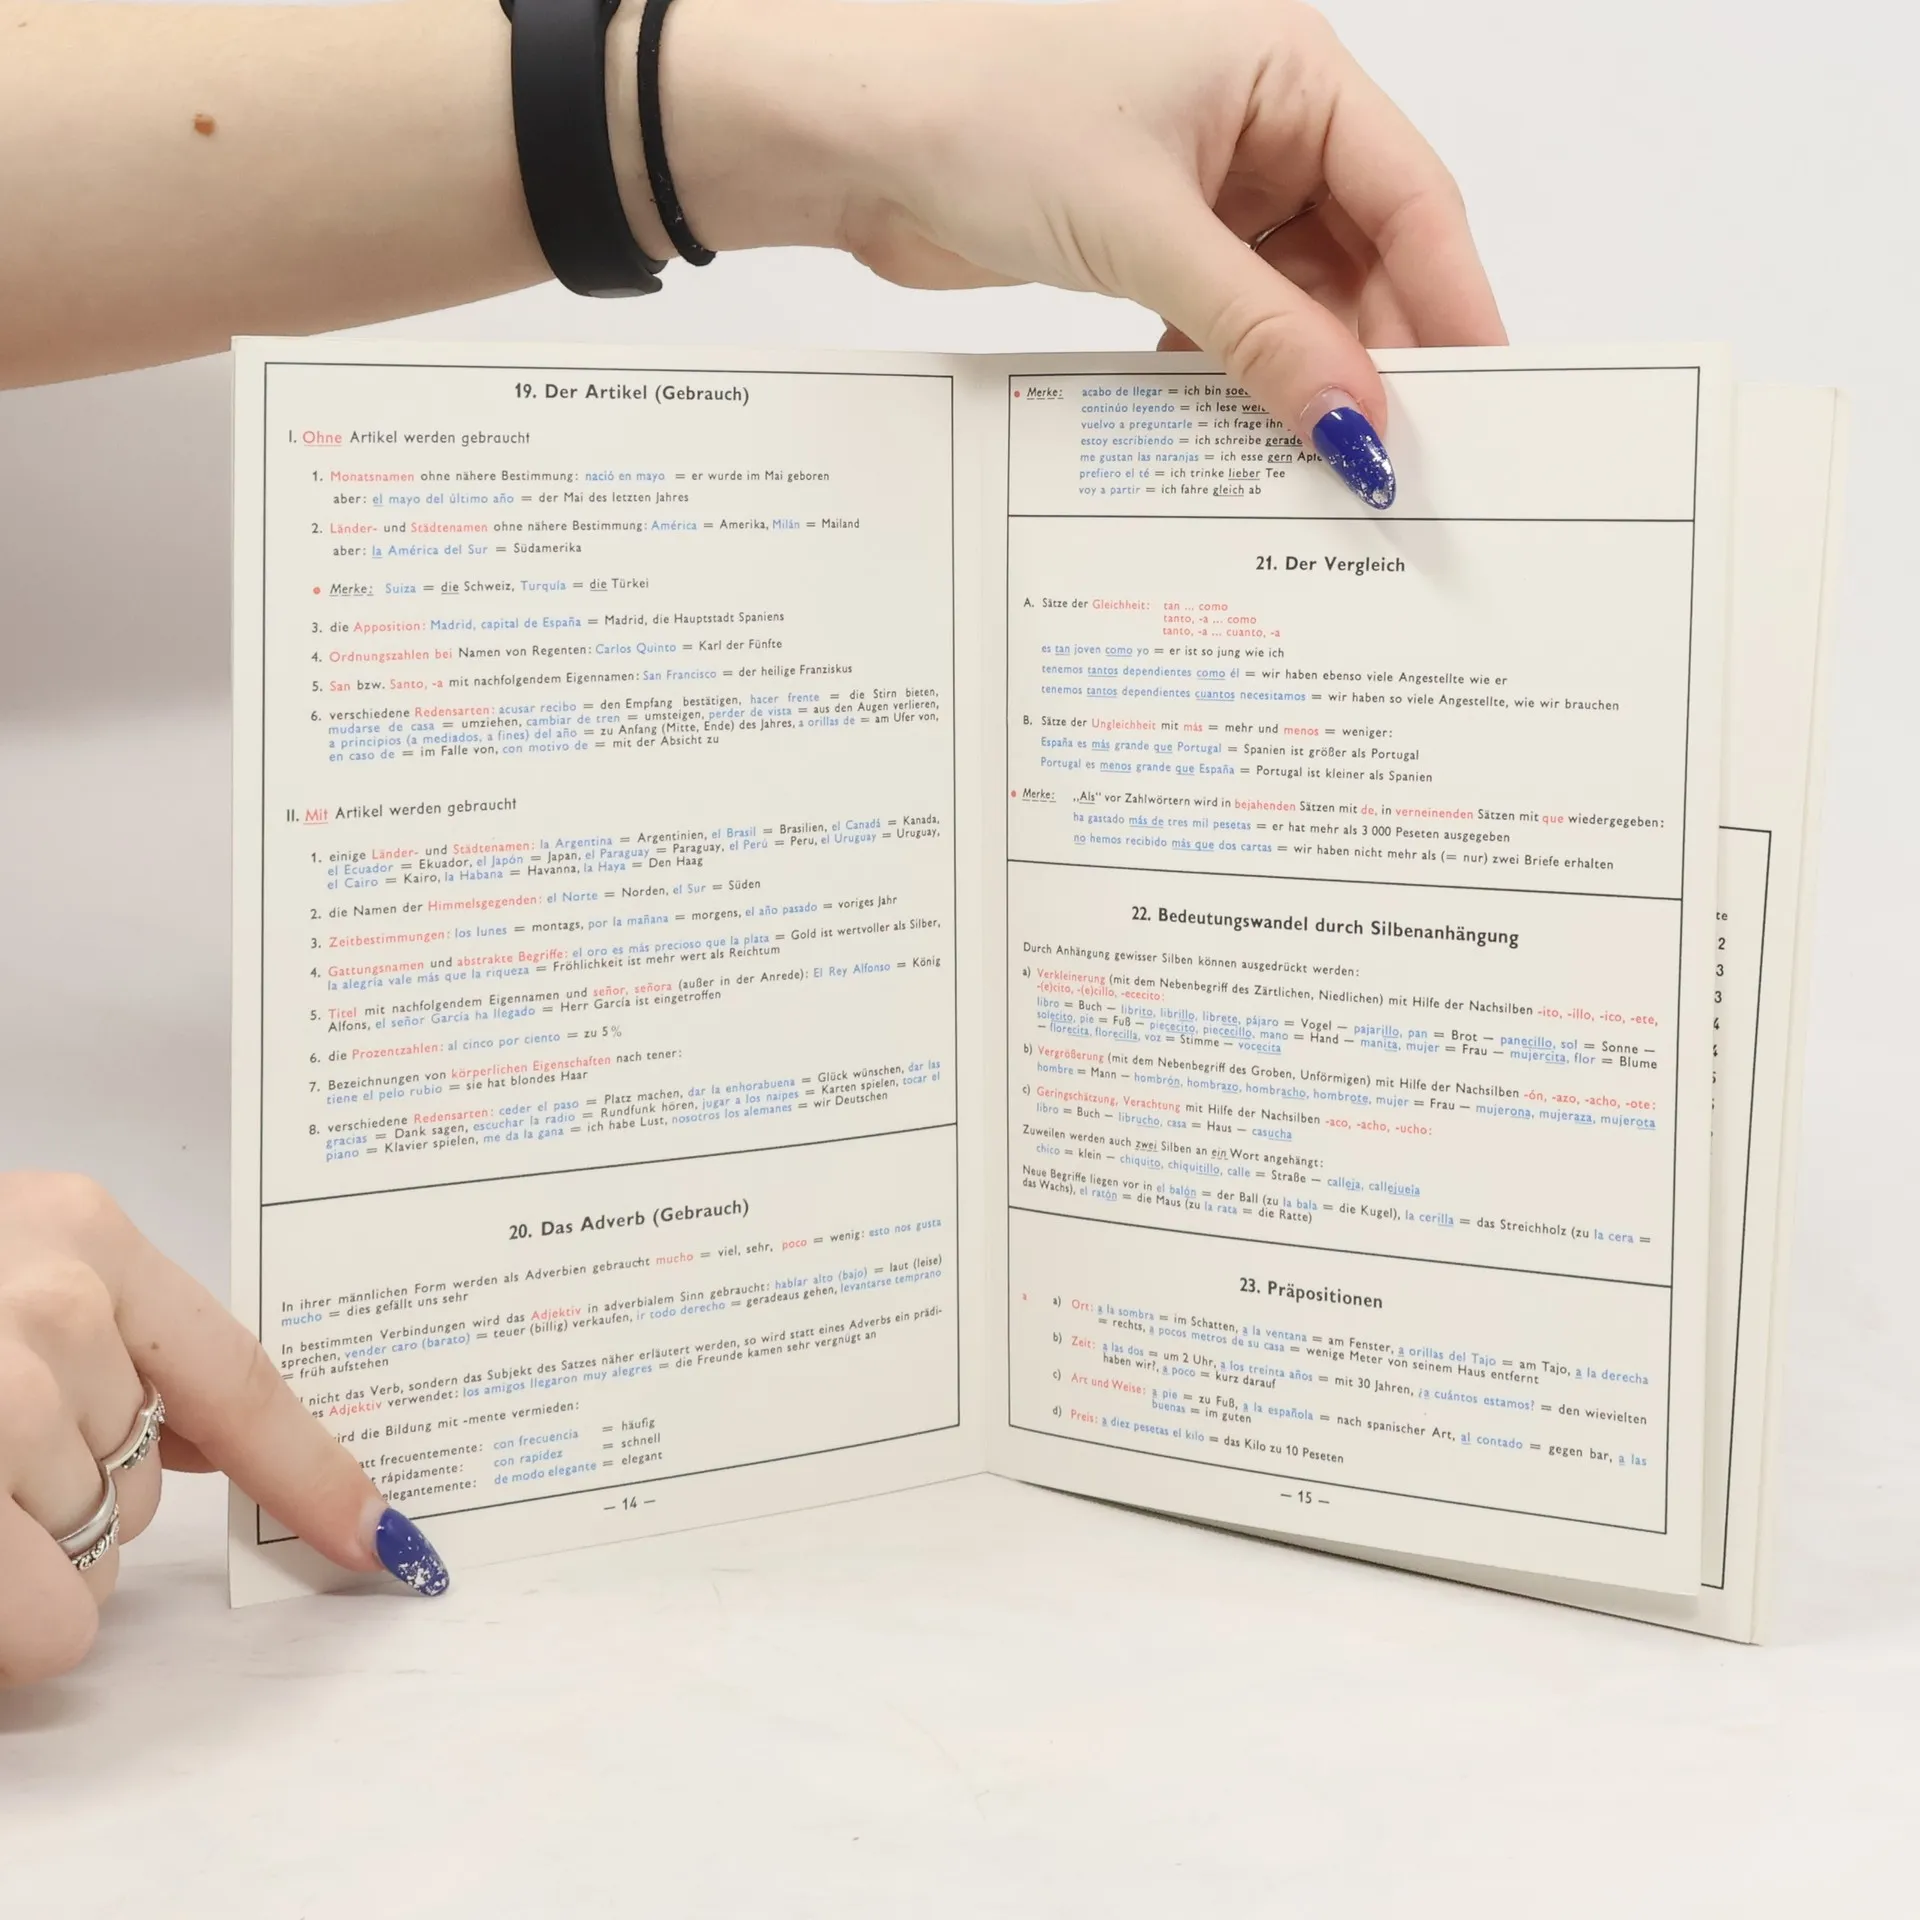 19. Der Artikel (Gebrauch)
I. Ohne Artikel werden gebraucht
1. Monatsnamen ohne nähere Bestimmung: nació en mayo = er wurde im Mai geboren
aber: el mayo del último año = der Mai des letzten Jahres
2. Länder- und Städtenamen ohne nähere Bestimmung: América = Amerika, Milán = Mailand
aber: la América del Sur = Südamerika
• Merke: Suiza = die Schweiz, Turquía = die Türkei
3. die Apposition: Madrid, capital de España = Madrid, die Hauptstadt Spaniens
4. Ordnungszahlen bei Namen von Regenten: Carlos Quinto = Karl der Fünfte
5. San bzw. Santo, -a mit nachfolgendem Eigennamen: San Francisco = der heilige Franziskus
6. verschiedene Redensarten: acusar recibo = den Empfang bestätigen, hacer frente = die Stirn bieten,
mudarse de casa = umziehen, cambiar de tren = umsteigen, perder de vista = aus den Augen verlieren,
a principios (a mediados, a fines) del año = zu Anfang (Mitte, Ende) des Jahres, a orillas de = am Ufer von,
en caso de = im Falle von, con motivo de = mit der Absicht zu
II. Mit Artikel werden gebraucht
1. einige Länder- und Städtenamen: la Argentina = Argentinien, el Brasil = Brasilien, el Canadá = Kanada,
el Ecuador = Ekuador, el Japón = Japan, el Paraguay = Paraguay, el Perú = Peru, el Uruguay = Uruguay,
el Cairo = Kairo, la Habana = Havanna, la Haya = Den Haag
2. die Namen der Himmelsgegenden: el Norte = Norden, el Sur = Süden
3. Zeitbestimmungen: los lunes = montags, por la mañana = morgens, el año pasado = voriges Jahr
4. Gattungsnamen und abstrakte Begriffe: el oro es más precioso que la plata = Gold ist wertvoller als Silber,
la alegría vale más que la riqueza = Fröhlichkeit ist mehr wert als Reichtum
5. Titel mit nachfolgendem Eigennamen und señor, señora (außer in der Anrede): El Rey Alfonso = König
Alfons, el señor García ha llegado = Herr García ist eingetroffen
6. die Prozentzahlen: al cinco por ciento = zu 5%
7. Bezeichnungen von körperlichen Eigenschaften nach tener:
tiene el pelo rubio = sie hat blondes Haar
8. verschiedene Redensarten: ceder el paso = Platz machen, dar la enhorabuena = Glück wünschen, dar las
gracias = Dank sagen, escuchar la radio = Rundfunk hören, jugar a los naipes = Karten spielen, tocar el
piano = Klavier spielen, me da la gana = ich habe Lust, nosotros los alemanes = wir Deutschen
20. Das Adverb (Gebrauch)
In ihrer männlichen Form werden als Adverbien gebraucht mucho = viel, sehr, poco = wenig: esto nos gusta
mucho = dies gefällt uns sehr
In bestimmten Verbindungen wird das Adjektiv in adverbialem Sinn gebraucht: hablar alto (bajo) = laut (leise)
sprechen, vender caro (barato) = teuer (billig) verkaufen, ir todo derecho = geradeaus gehen, levantarse temprano
= früh aufstehen
nicht das Verb, sondern das Subjekt des Satzes näher erläutert werden, so wird statt eines Adverbs ein prädi-
es Adjektiv verwendet: los amigos llegaron muy alegres = die Freunde kamen sehr vergnügt an
ird die Bildung mit -mente vermieden:
att frecuentemente: con frecuencia = häufig
rápidamente: con rapidez = schnell
elegantemente: de modo elegante = elegant
— 14 —
• Merke: acabo de llegar = ich bin
continúo leyendo = ich lese
vuelvo a preguntarle = ich frage ihn
estoy escribiendo = ich schreibe gerade
me gustan las naranjas = ich esse gern
prefiero el té = ich trinke lieber Tee
voy a partir = ich fahre gleich ab
21. Der Vergleich
A. Sätze der Gleichheit: tan ... como
tanto, -a ... como
tanto, -a ... cuanto, -a
es tan joven como yo = er ist so jung wie ich
tenemos tantos dependientes como él = wir haben ebenso viele Angestellte wie er
tenemos tantos dependientes cuantos necesitamos = wir haben so viele Angestellte, wie wir brauchen
B. Sätze der Ungleichheit mit más = mehr und menos = weniger:
España es más grande que Portugal = Spanien ist größer als Portugal
Portugal es menos grande que España = Portugal ist kleiner als Spanien
• Merke: „Als“ vor Zahlwörtern wird in bejahenden Sätzen mit de, in verneinenden Sätzen mit que wiedergegeben:
ha gastado más de tres mil pesetas = er hat mehr als 3 000 Peseten ausgegeben
no hemos recibido más que dos cartas = wir haben nicht mehr als (= nur) zwei Briefe erhalten
22. Bedeutungswandel durch Silbenanhängung
Durch Anhängung gewisser Silben können ausgedrückt werden:
a) Verkleinerung (mit dem Nebenbegriff des Zärtlichen, Niedlichen) mit Hilfe der Nachsilben -ito, -illo, -ico, -ete,
-(e)cito, -(e)cillo, -ececito:
libro = Buch — librito, librillo, librete, pájaro = Vogel — pajarillo, pan = Brot — panecillo, sol = Sonne —
solecito, pie = Fuß — piececito, piececillo, mano = Hand — manita, mujer = Frau — mujercita, flor = Blume
— florecita, florecilla, voz = Stimme — vocecita
b) Vergrößerung (mit dem Nebenbegriff des Groben, Unförmigen) mit Hilfe der Nachsilben -ón, -azo, -acho, -ote:
hombre = Mann — hombrón, hombrazo, hombracho, hombrote, mujer = Frau — mujerona, mujeraza, mujerota
c) Geringschätzung, Verachtung mit Hilfe der Nachsilben -aco, -acho, -ucho:
libro = Buch — librucho, casa = Haus — casucha
Zuweilen werden auch zwei Silben an ein Wort angehängt:
chico = klein — chiquito, chiquitillo, calle = Straße — calleja, callejuela
Neue Begriffe liegen vor in el balón = der Ball (zu la bala = die Kugel), la cerilla = das Streichholz (zu la cera =
das Wachs), el ratón = die Maus (zu la rata = die Ratte)
23. Präpositionen
a a) Ort: a la sombra = im Schatten, a la ventana = am Fenster, a orillas del Tajo = am Tajo, a la derecha
= rechts, a pocos metros de su casa = wenige Meter von seinem Haus entfernt
b) Zeit: a las dos = um 2 Uhr, a los treinta años = mit 30 Jahren, ¿a cuántos estamos? = den wievielten
haben wir?, a poco = kurz darauf
c) Art und Weise: a pie = zu Fuß, a la española = nach spanischer Art, al contado = gegen bar, a las
buenas = im guten
d) Preis: a diez pesetas el kilo = das Kilo zu 10 Peseten
— 15 —
te
2
3
3
4